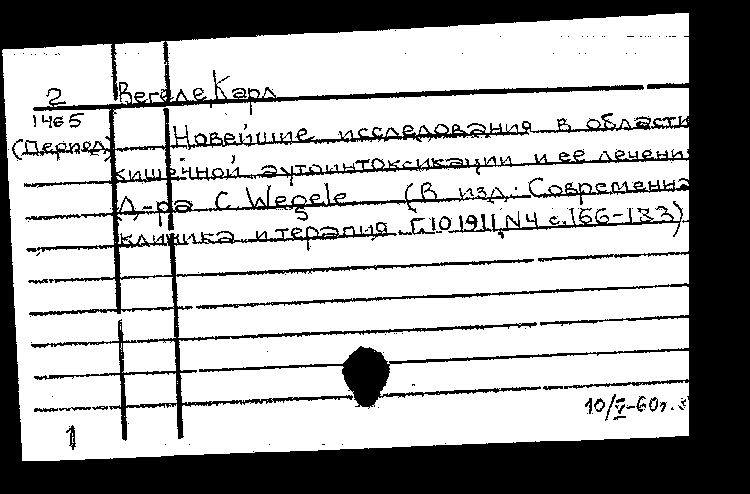 2 Вегеле, Карл
1465
(Период) Новейшие исследования в области
кишечной аутоинтоксикации и ее лечени
Д-ра C. Wegele (В изд.: Современна
клиника и терапия. Г.10 1911, N4 с.166-183)
10/V-60г.
1